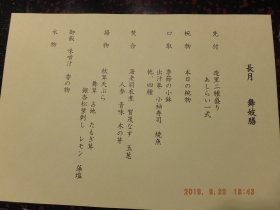 長月　舞妓膳
先付　造里二種盛り
あしらい一式
椀物　本日の椀物
口取　季節の小鉢
出汁巻　小袖寿司　焼魚
他、四種
焚合　海老羽衣煮　賀茂なす　五葱
人参　青味　木の芽
揚物　秋草天ぷら
舞茸　占地　たもぎ茸
銀杏松葉刺し　レモン　藻塩
御飯　味噌汁　香の物
水物
2018. 9.20 18:43